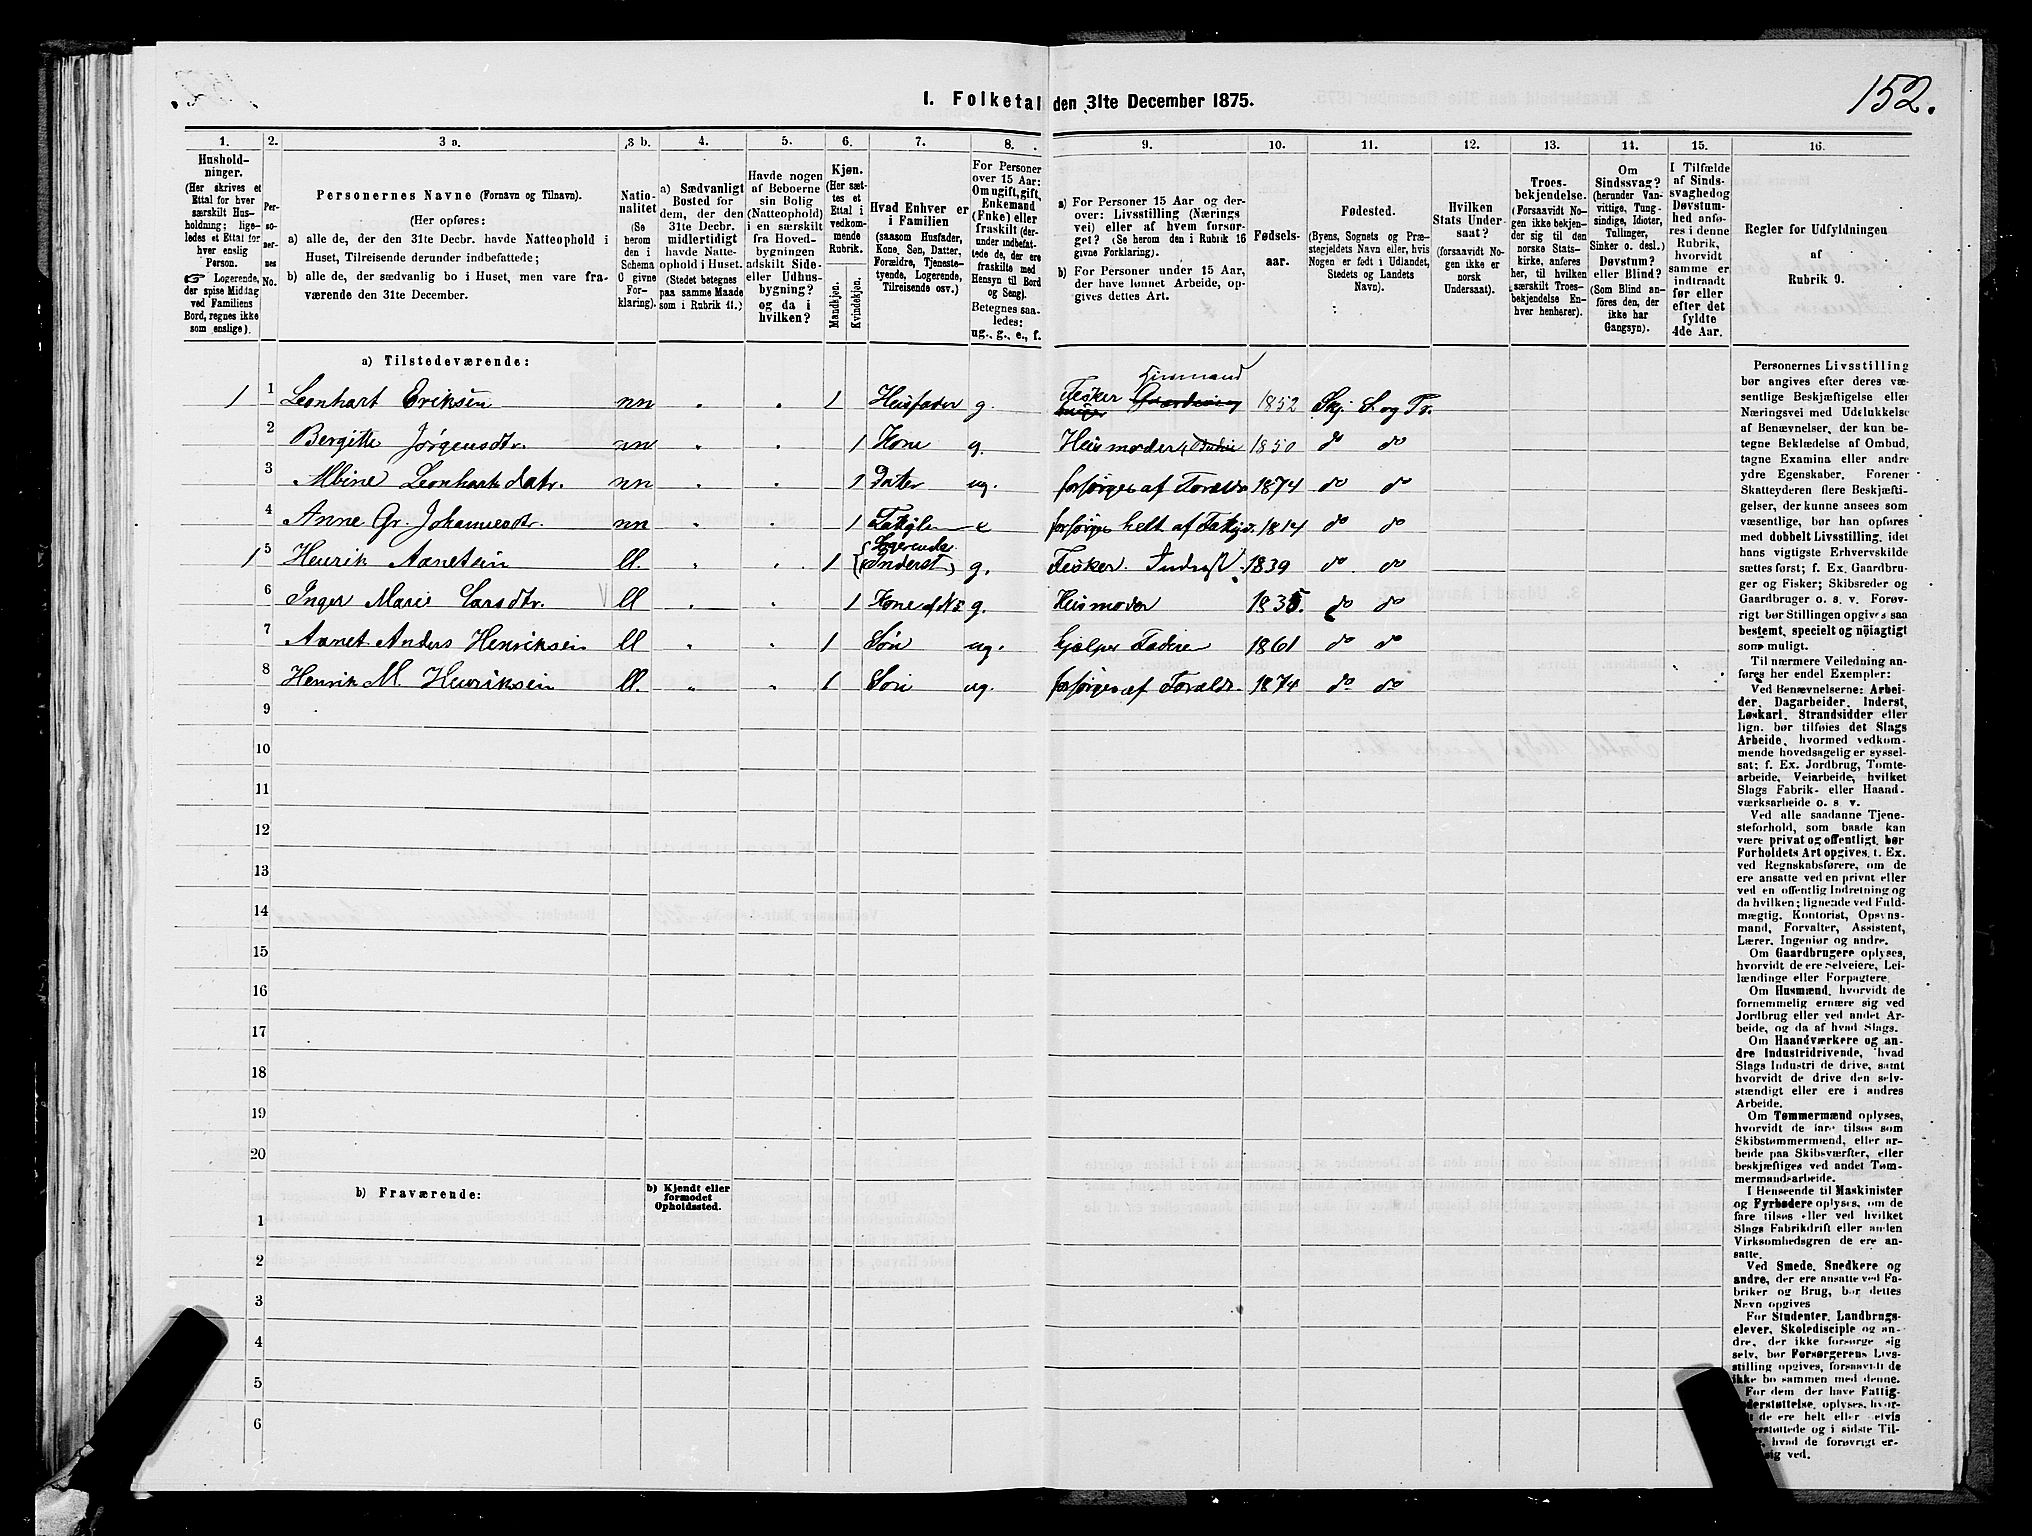 152.
1. Folketal den 31te December 1875.
1.
Hushold-
ninger.
(Her skrives et
Ettal for hver
særskilt Hus-
holdning; lige-
ledes et Ettal for
hver enslig
Person.
☞ Logerende,
der spise Middag
ved Familiens
Bord, regnes ikke
som enslige).
2.
Per-
so-
ner-
nes
No.
3 a.
Personernes Navne (Fornavn og Tilnavn).
(Her opføres:
a) alle de, der den 31te Decbr. havde Natteophold i
Huset, Tilreisende derunder indbefattede;
b) alle de, der sædvanlig bo i Huset, men vare fra-
værende den 31te December.
3 b.
Natio-
nalitet
(Se
herom
den i
Schema
O givne
For-
klaring).
4.
a) Sædvanligt
Bosted for
dem, der den
31te Decbr.
midlertidigt
havde Natte-
ophold i Huset.
(Stedet betegnes
paa samme Maade
som i Rubrik 11.)
5.
Havde nogen
af Beboerne
sin Bolig
(Natteophold)
i en særskilt
fra Hoved-
bygningen
adskilt Side-
eller Udhus-
bygning?
og da i
hvilken?
6.
Kjøn.
(Her sæt-
tes et
Ettal i
vedkom-
mende
Rubrik.
Mandkjøn.
Kvindekjøn.
7.
Hvad Enhver er
i Familien
(saasom Husfader,
Kone, Søn, Datter,
Forældre, Tjeneste-
tyende, Logerende,
Tilreisende osv.)
8.
For Personer
over 15 Aar:
Om ugift, gift,
Enkemand
(Enke) eller
fraskilt (der-
under indbefat-
tede de, der ere
fraskilte med
Hensyn til Bord
og Seng).
Betegnes saa-
ledes:
ug., g., e., f.
9.
a) For Personer 15 Aar og der-
over: Livsstilling (Nærings
vei) eller af hvem forsør-
get? (Se herom den i Rubrik 16
givne Forklaring).
b) For Personer under 15 Aar,
der have lønnet Arbeide, op-
gives dettes Art.
10.
Fødsels-
aar.
11.
Fødested.
(Byens, Sognets og Præ-
stegjeldets Navn eller, hvis
Nogen er født i Udlandet,
Stedets og Landets
Navn).
12.
Hvilken
Stats Under-
saat?
(forsaavidt No-
gen ikke er
norsk
Undersaat).
13.
Troes-
bekjendelse.
(Forsaavidt No-
gen ikke bekjen-
der sig til den
norske Stats-
kirke, anføres
her, til hvilken
særskilt Troes-
bekjendelse En-
hver henhører).
14.
Om
Sindssvag?
(herunder Van-
vittige, Tung-
sindige, Idioter,
Tullinger,
Sinker o. desl.)
Døvstum?
eller Blind?
(Som Blind an-
føres den, der
ikke har
Gangsyn).
15.
I Tilfælde
af Sinds-
svaghed og
Døvstum-
hed anfø-
res i denne
Rubrik,
hvorvidt
samme er
indtraadt
før eller
efter det
fyldte
4de Aar.
16.
Regler for Udfyldningen
af
Rubrik 9.
a) Tilstedeværende:
1 1 Leonhart Eriksen nn „ „ 1 Husfader g. Fisker 1852 Skj. S. og Tr.
2 Bergitte Jørgensdtr. nn „ „ 1 Kone g. Husmoder 1850 do do
3 Albine Leonhartsdatr. nn „ „ 1 Datter ug. forsørges af Forældr. 1874 do do
4 Anne Gr. Johannesdtr. nn „ „ 1 e forsørges helt af 1814 do do
1 5 Henrik ll. „ „ 1 Logerende Inderst g. Fisker. 1839 do do
6 Inger Marie Larsdtr. ll „ „ 1 Kone g. Husmoder 1835. do do
7 Anders Henriksen ll „ „ 1 Søn ug. hjælper Faderen 1861 do do
8 Henrik M. Henriksen ll. „ „ 1 Søn ug. forsørges af Forældr. 1874 do do
9
10
11
12
13
14
15
16
17
18
19
20
b) Fraværende:
b) Kjendt eller
formodet
Opholdssted.
1
2
3
4
5
6
Personernes Livsstilling
bør angives efter deres væ-
sentlige Beskjæftigelse eller
Næringsvei med Udelukkelse
af Benævnelser, der kun be-
tegne Beklædelse af Ombud,
tagne Examina eller andre
ydre Egenskaber. Forener
Skatteyderen flere Beskjæfti-
gelser, der kunne ansees som
væsentlige, bør han opføres
med dobbelt Livsstilling, idet
hans vigtigste Erhvervskilde
sættes først; f. Ex. Gaardbru-
ger og Fisker; Skibsreder og
Gaardbruger o. s. v. Forøv-
rigt bør Stillingen opgives saa
bestemt, specielt og nøiagtigt
som muligt.
Til nærmere Veiledning an-
føres her endel Exempler:
Ved Benævnelserne: Arbei-
der, Dagarbeider, Inderst,
Løskarl, Strandsidder eller
lign. bør tilføies det Slags
Arbeide, hvormed vedkom-
mende hovedsagelig er syssel-
sat; f. Ex. Jordbrug, Tomte-
arbeide, Veiarbeide, hvilket
Slags Fabrik- eller Haand-
værksarbeide o. s. v.
Ved alle saadanne Tjene-
steforhold, som baade kan
være privat og offentligt, bør
Forholdets Art opgives, t. Ex.
ved Regnskabsførere, om de
ere ansatte ved en privat eller
ved en offentlig Indretning og
da hvilken; lignende ved Fuld-
mægtig, Kontorist, Opsyns-
mand, Forvalter, Assistent,
Lærer, Ingeniør og andre.
Om Gaardbrugere oplyses,
hvorvidt de ere Selveiere, Lei-
lændinge eller Forpagtere.
Om Husmænd, hvorvidt de
fornemmelig ernære sig ved
Jordbrug eller ved andet Ar-
beide, og da af hvad Slags.
Om Haandværkere og an-
dre Industridrivende, hvad
Slags Industri de drive, samt
hvorvidt de drive den selv-
stændigt eller ere i andres
Arbeide.
Om Tømmermænd oplyses,
hvorvidt de fare tilsøs som
Skibstømmermænd, eller ar-
beide paa Skibsværfter, eller
beskjæftiges ved andet Tøm-
mermandsarbeide.
I Henseende til Maskinister
og Fyrbødere oplyses, om de
fare tilsøs eller ved hvilket
Slags Fabrikdrift eller anden
Virksomhedsgren de ere an-
satte.
Ved Smede, Snedkere og
andre, der ere ansatte ved Fa-
briker og Brug, bør dettes
Navn opgives
For Studenter, Landbrugs-
elever, Skoledisciple og an-
dre, der ikke forsørge sig
selv, bør Forsørgerens Livs-
stilling opgives, forsaavidt de
ikke bo sammen med denne.
For dem, der have Fattig-
understøttelse, oplyses, hvor-
de ere helt eller
og i sidste Til-
hvad de forøvrigt er-
sig ved.